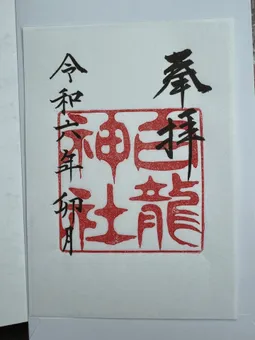 奉拝
白龍
神社
令和六年卯月